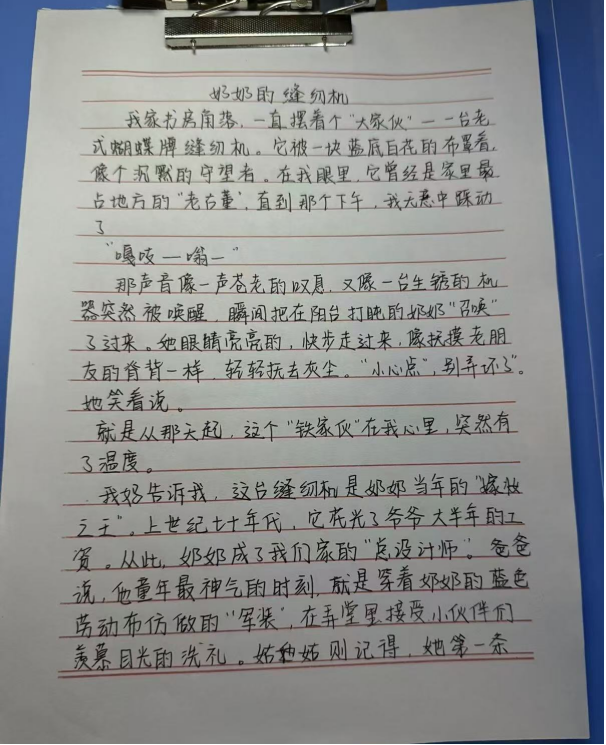 奶奶的缝纫机
我家书房角落，一直摆着个“大家伙”——一台老
式蝴蝶牌缝纫机。它被一块蓝底白花的布罩着，
像个沉默的守望者。在我眼里，它曾经是家里最
占地方的“老古董”，直到那个下午，我无意中踩动
了
“嘎吱—嗡—”
那声音像一声苍老的叹息，又像一台生锈的机
器突然被唤醒，瞬间把在阳台打盹的奶奶“召唤”
了过来。她眼睛亮亮的，快步走过来，像抚摸老朋
友的脊背一样，轻轻抚去灰尘。“小心点”，别弄坏了”。
她笑着说。
就是从那天起，这个“铁家伙”在我心里，突然有
了温度。
我妈告诉我，这台缝纫机是奶奶当年的“嫁妆
之王”。上世纪七十年代，它花光了爷爷大半年的工
资。从此，奶奶成了我们家的“总设计师”。爸爸
说，他童年最神气的时刻，就是穿着奶奶的蓝色
劳动布仿做的“军装”，在弄堂里接受小伙伴们
羡慕目光的洗礼。姑姑则记得，她第一条